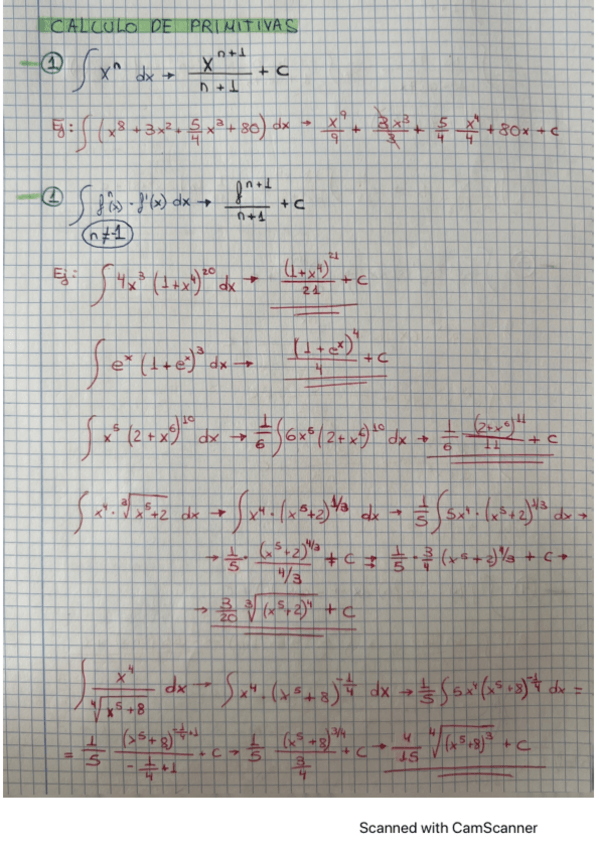 CALCULO DE PRIMITIVAS
① ∫ xⁿ dx → xⁿ⁺¹/(n+1) + C
Ej: ∫ (x⁸ + 3x² + 5/4 x³ + 80) dx → x⁹/9 + 3x³/3 + 5/4 x⁴/4 + 80x + C
① ∫ fⁿ(x) · f'(x) dx → fⁿ⁺¹/(n+1) + C
n ≠ -1
Ej: ∫ 4x³ (1+x⁴)²⁰ dx → (1+x⁴)²¹/21 + C
∫ eˣ (1+eˣ)³ dx → (1+eˣ)⁴/4 + C
∫ x⁵ (2+x⁶)¹⁰ dx → 1/6 ∫ 6x⁵ (2+x⁶)¹⁰ dx → 1/6 (2+x⁶)¹¹/11 + C
∫ x⁴ · ³√(x⁵+2) dx → ∫ x⁴ · (x⁵+2)^(1/3) dx → 1/5 ∫ 5x⁴ · (x⁵+2)^(1/3) dx →
→ 1/5 · (x⁵+2)^(4/3)/(4/3) + C → 1/5 · 3/4 (x⁵+2)^(4/3) + C →
→ 3/20 ³√((x⁵+2)⁴) + C
∫ x⁴/⁴√(x⁵+8) dx → ∫ x⁴ · (x⁵+8)^(-1/4) dx → 1/5 ∫ 5x⁴ (x⁵+8)^(-1/4) dx =
= 1/5 (x⁵+8)^(-1/4+1)/(-1/4+1) + C → 1/5 (x⁵+8)^(3/4)/(3/4) + C → 4/15 ⁴√((x⁵+8)³) + C
Scanned with CamScanner